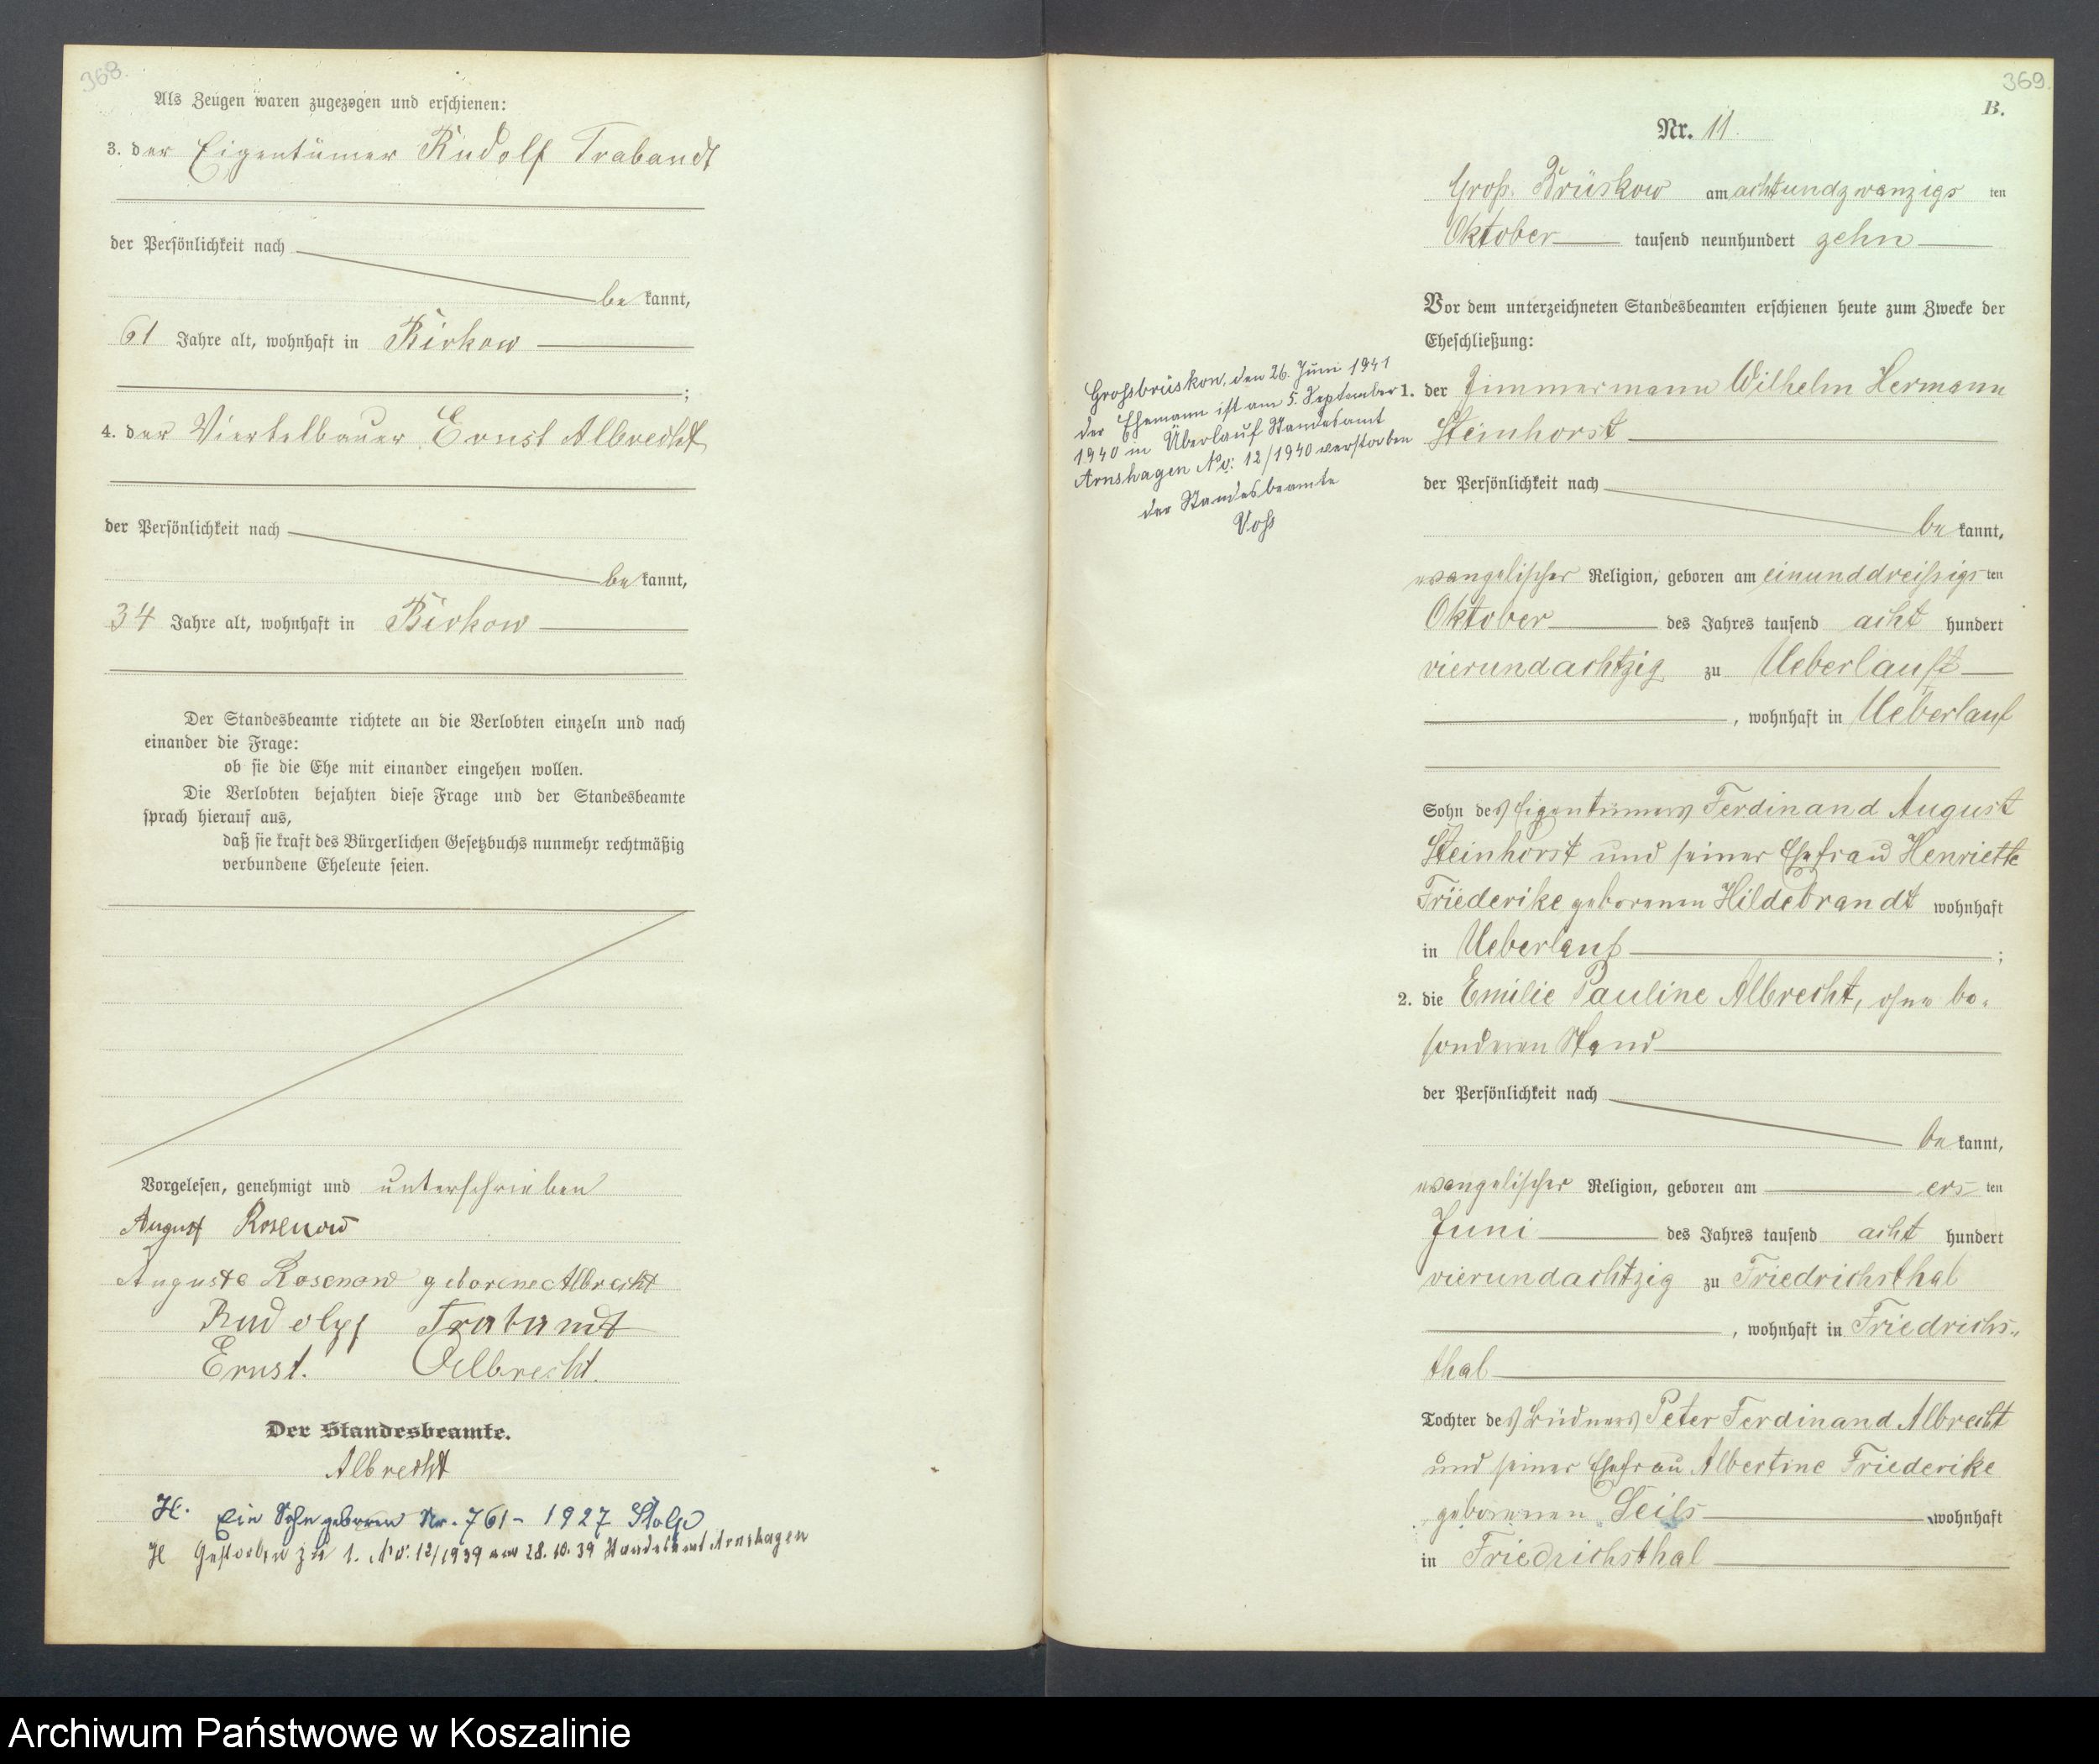 368.
Als Zeugen waren zugezogen und erschienen:
3. der Eigentümer Rudolf Trabandt
der Persönlichkeit nach
be kannt,
61 Jahre alt, wohnhaft in Birkow
;
4. der Viertelbauer Ernst Albrecht
der Persönlichkeit nach
be kannt,
34 Jahre alt, wohnhaft in Birkow
Der Standesbeamte richtete an die Verlobten einzeln und nach
einander die Frage:
ob sie die Ehe mit einander eingehen wollen.
Die Verlobten bejahten diese Frage und der Standesbeamte
sprach hierauf aus,
daß sie kraft des Bürgerlichen Gesetzbuchs nunmehr rechtmäßig
verbundene Eheleute seien.
Vorgelesen, genehmigt und unterschrieben
August Rosenow
Auguste Rosenow geborene Albrecht
Rudolf Trabandt
Ernst. Albrecht.
Der Standesbeamte.
Albrecht
H. Ein Sohn geboren Nr. 761 - 1927 Stolp
H Gestorben zu 1. No: 12/1939 am 28.10.39 Standesamt Arnshagen
369.
B.
Nr. 11.
Groß. Brüskow am achtundzwanzigs ten
Oktober tausend neunhundert zehn
Vor dem unterzeichneten Standesbeamten erschienen heute zum Zwecke der
Eheschließung:
1. der Zimmermann Wilhelm Hermann
Steinhorst
der Persönlichkeit nach
be kannt,
evangelischer Religion, geboren am einunddreißigs ten
Oktober des Jahres tausend acht hundert
vierundachtzig zu Ueberlauf
, wohnhaft in Ueberlauf
Sohn des Eigentümers Ferdinand August
Steinhorst und seiner Ehefrau Henriette
Friederike geborenen Hildebrandt wohnhaft
in Ueberlauf ;
2. die Emilie Pauline Albrecht, ohne be-
sonderen Stand
der Persönlichkeit nach
be kannt,
evangelischer Religion, geboren am ers ten
Juni des Jahres tausend acht hundert
vierundachtzig zu Friedrichsthal
, wohnhaft in Friedrichs-
thal
Tochter des Büdners Peter Ferdinand Albrecht
und seiner Ehefrau Albertine Friederike
geborenen Seils wohnhaft
in Friedrichsthal
Großbrüskow, den 26. Juni 1941
der Ehemann ist am 5. September
1940 in Überlauf Standesamt
Arnshagen No: 12/1940 verstorben
der Standesbeamte
Voß
Archiwum Państwowe w Koszalinie